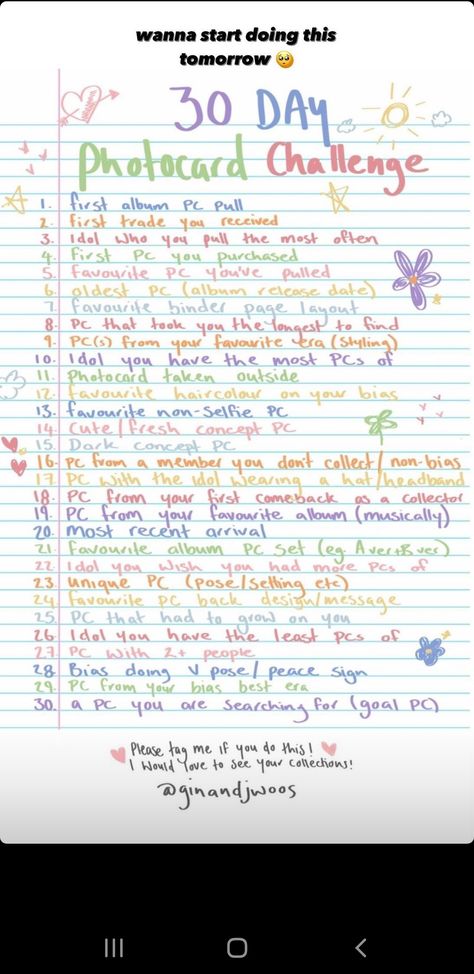 wanna start doing this
tomorrow 🥺
30 DAY
Photocard Challenge
1. first album PC pull
2. first trade you received
3. Idol who you pull the most often
4. First PC you purchased
5. favourite PC you've pulled
6. oldest PC (album release date)
7. favourite binder page layout
8. PC that took you the longest to find
9. PC(s) from your favourite era (styling)
10. Idol you have the most PCs of
11. Photocard taken outside
12. favourite haircolour on your bias
13. favourite non-selfie PC
14. Cute/fresh concept PC
15. Dark concept PC
16. PC from a member you don't collect/non-bias
17. PC with the idol wearing a hat/headband
18. PC from your first comeback as a collector
19. PC from your favourite album (musically)
20. most recent arrival
21. favourite album PC set (eg. A ver+B ver)
22. Idol you wish you had more PCs of
23. unique PC (pose/setting etc)
24. favourite PC back design/message
25. PC that had to grow on you
26. Idol you have the least PCs of
27. PC with 2+ people
28. Bias doing V pose/peace sign
29. PC from your bias best era
30. a PC you are searching for (goal PC)
Please tag me if you do this!
I would love to see your collections!
@ginandjwoos